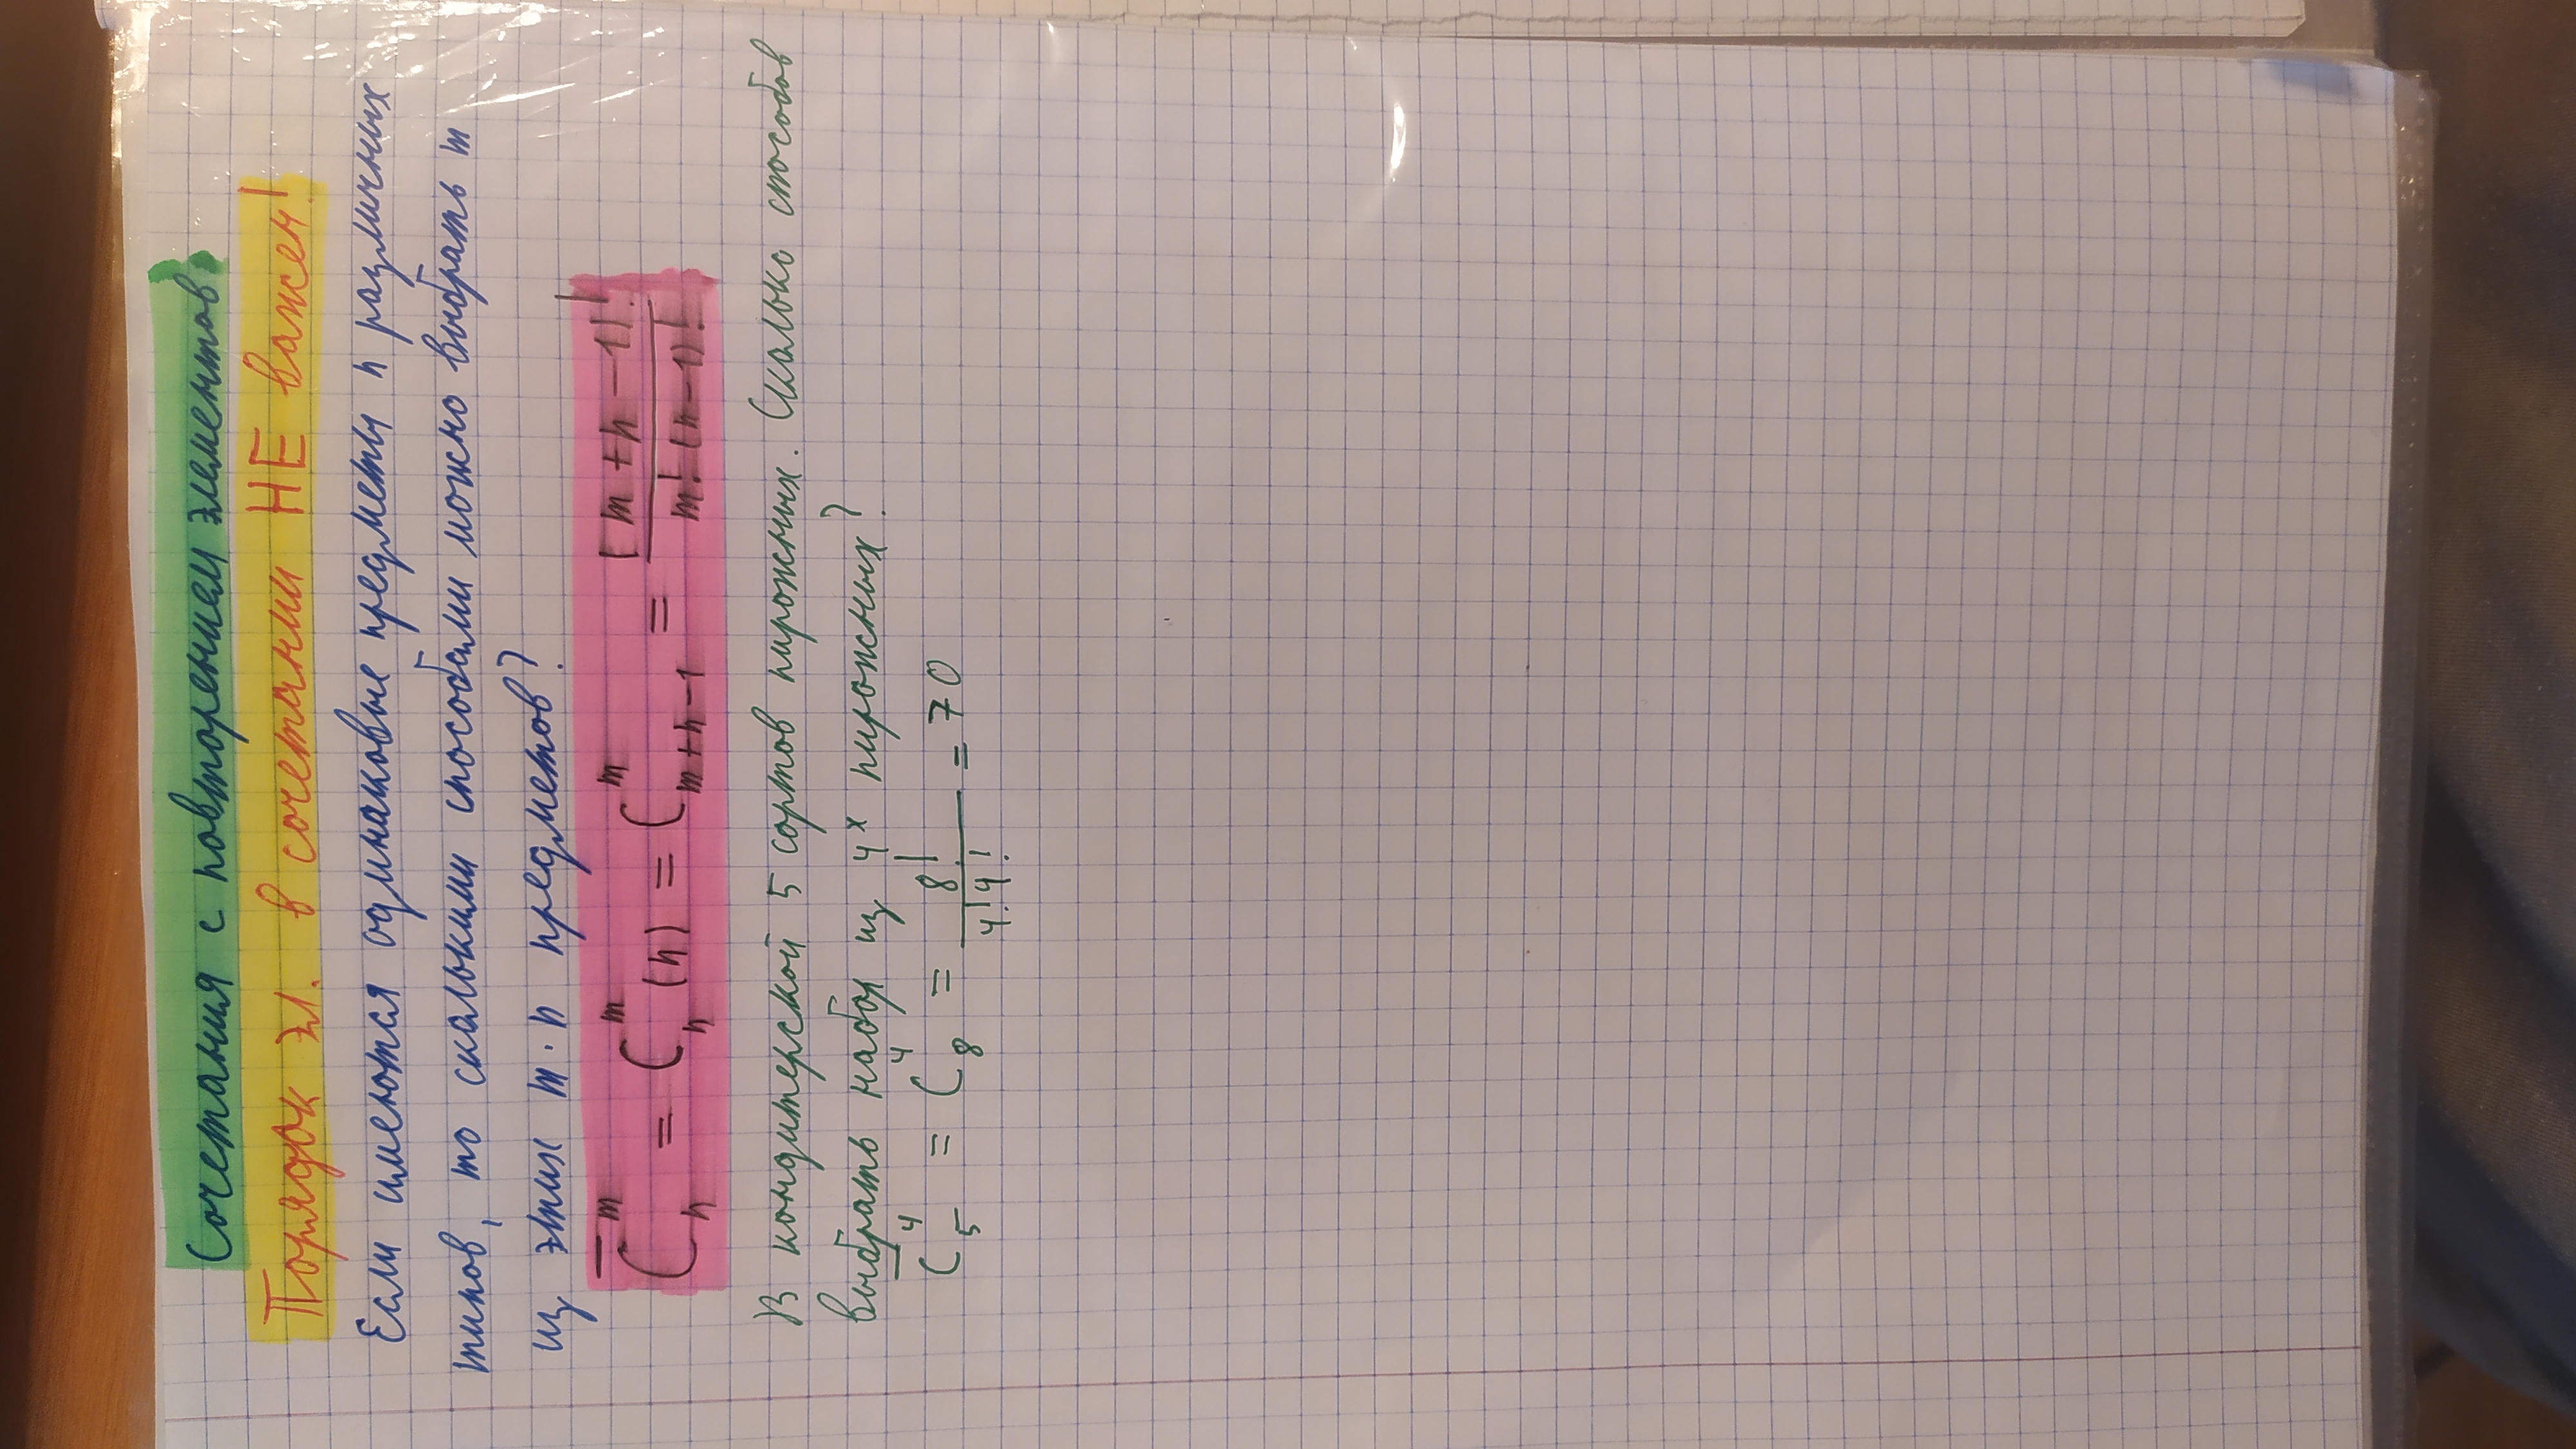 Сочетания с повторением элементов
Порядок эл. в сочетании НЕ важен!
Если имеются одинаковые предметы n различных
типов, то сколькими способами можно выбрать m
из этих m·n предметов?
C̅ₙᵐ = Cₙᵐ(n) = Cₘ₊ₙ₋₁ᵐ = (m+n-1)! / m!(n-1)!
В кондитерской 5 сортов пирожных. Сколько способов
выбрать набор из 4ˣ пирожных?
C̅₅⁴ = C₈⁴ = 8! / 4!4! = 70